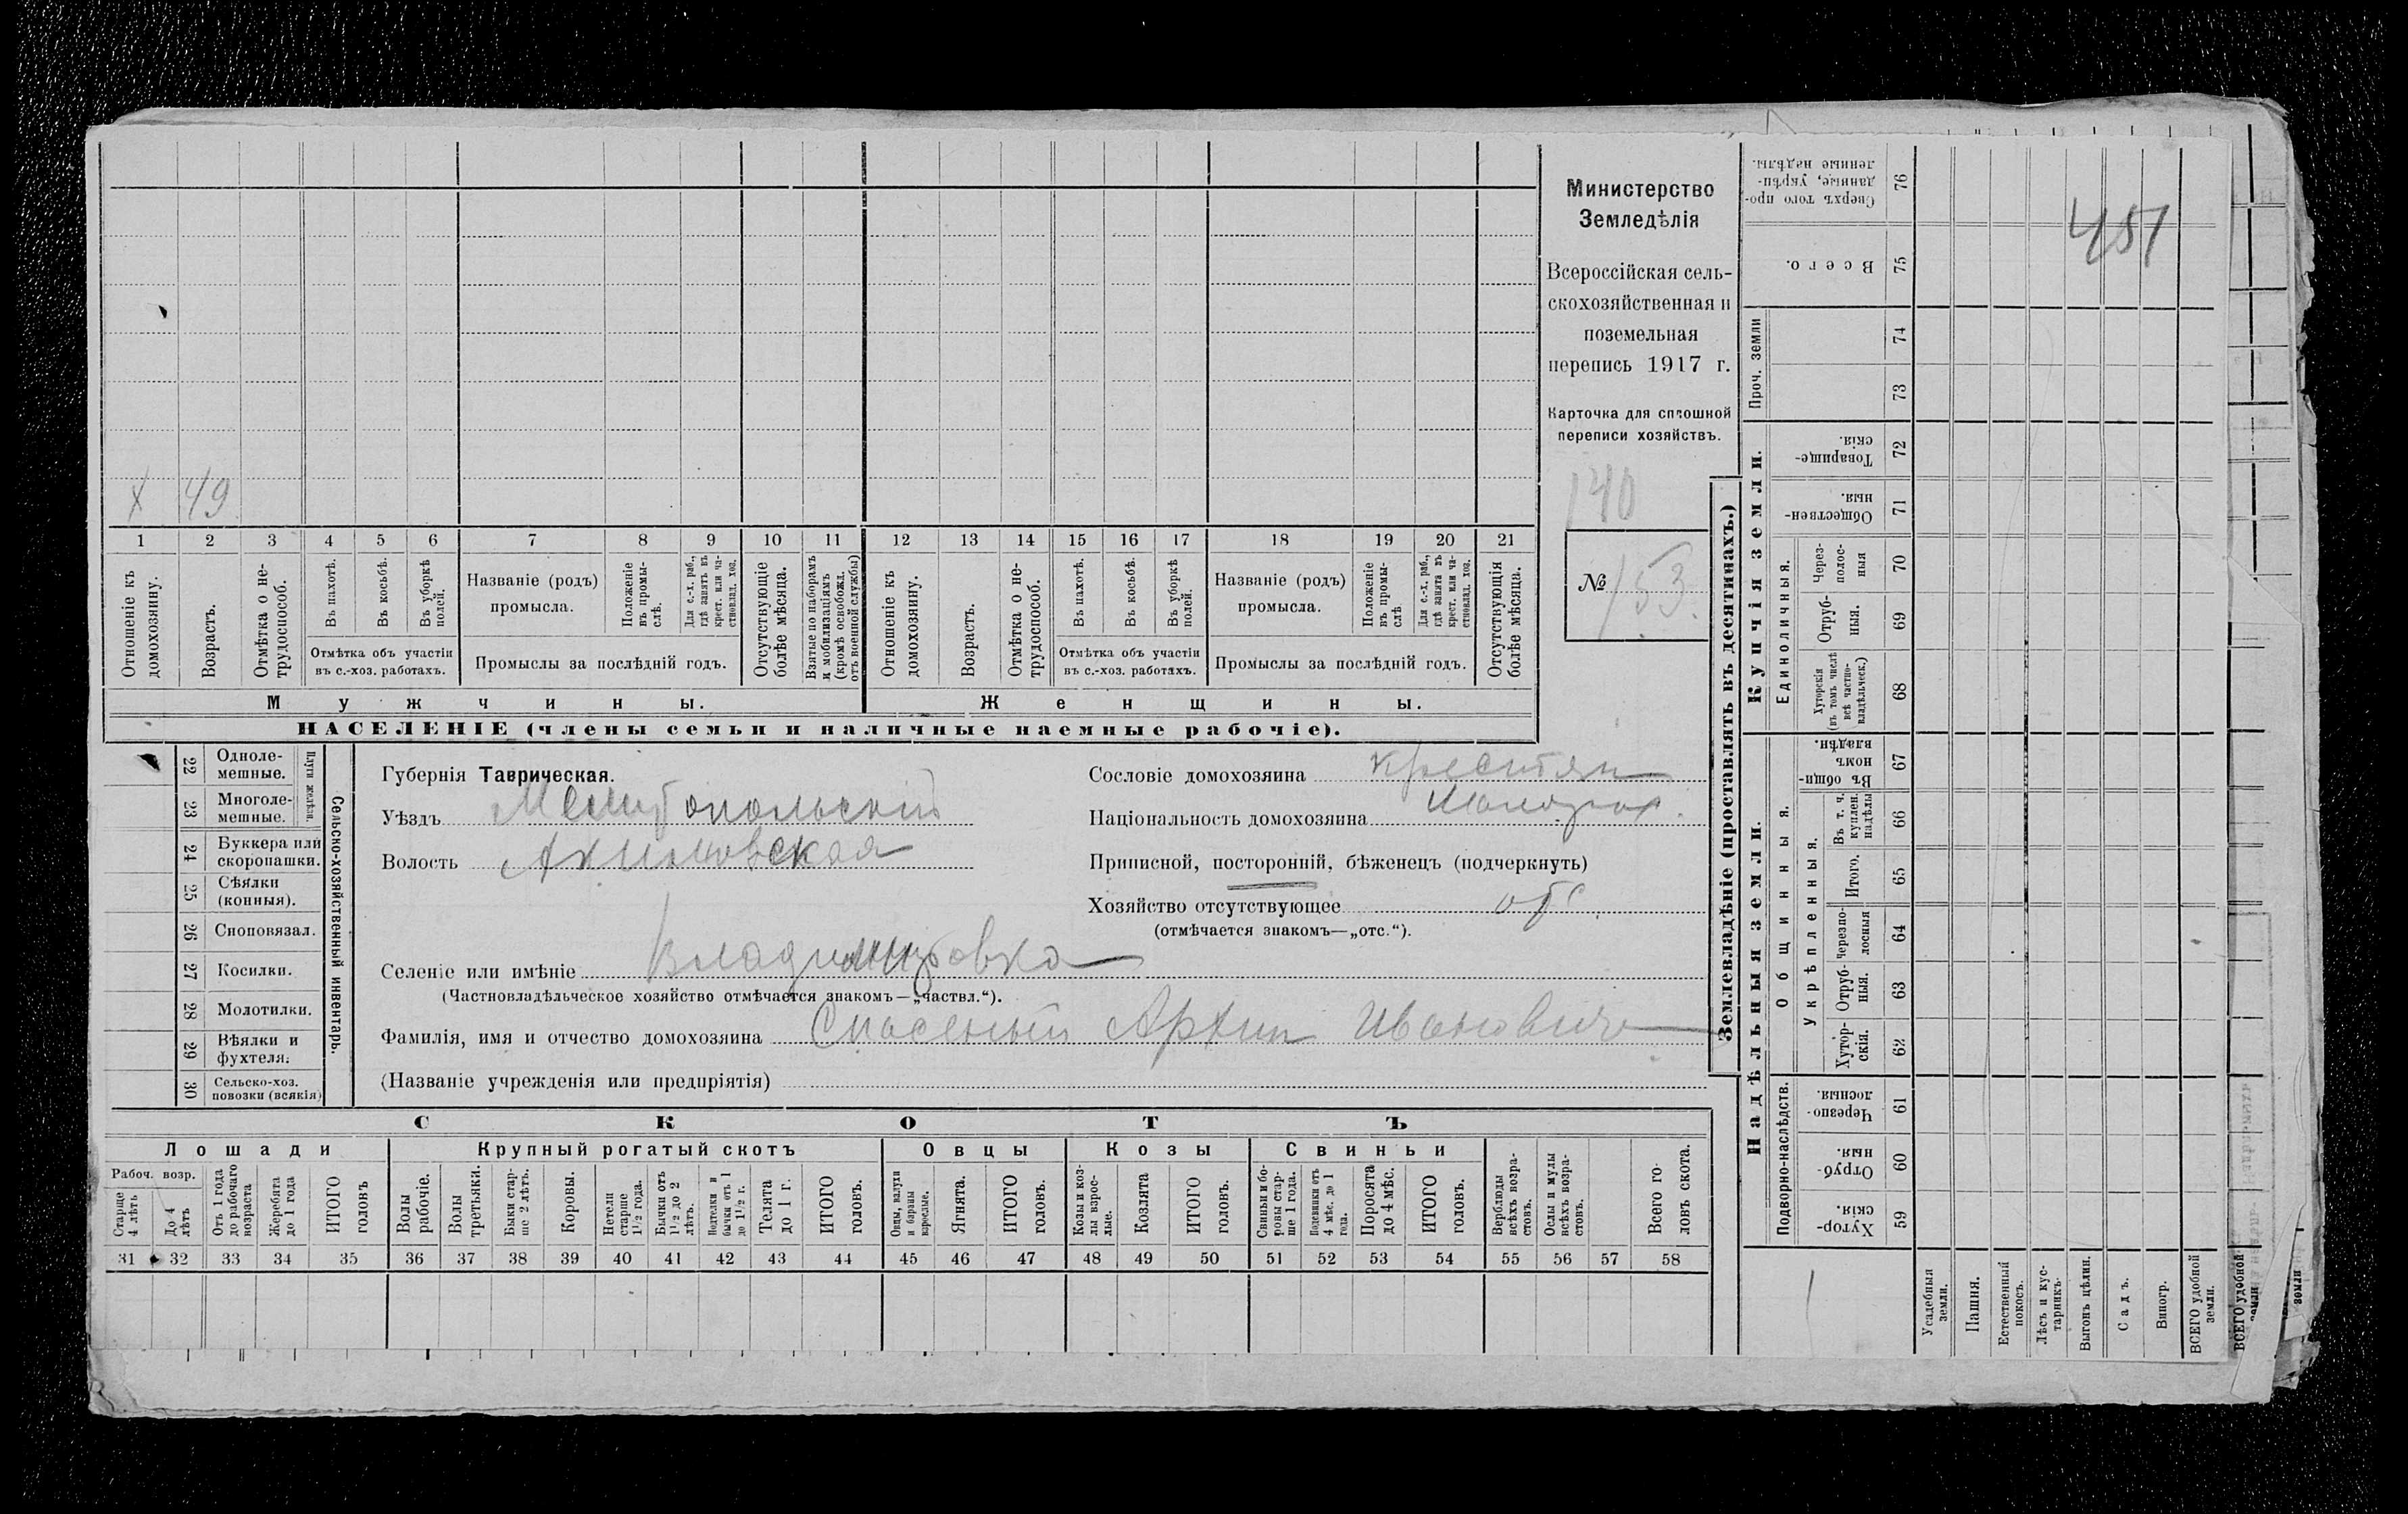 Министерство
Земледѣлія
Всероссійская сель-
скохозяйственная и
поземельная
перепись 1917 г.
Карточка для сплошной
переписи хозяйствъ.
140
№ 153.
451
х 49
1 2 3 4 5 6 7 8 9 10 11 12 13 14 15 16 17 18 19 20 21
Отношеніе къ домохозяину.
Возрастъ.
Отмѣтка о не-трудоспособ.
Въ пахотѣ.
Въ косьбѣ.
Въ уборкѣ полей.
Отмѣтка объ участіи
въ с.-хоз. работахъ.
Названіе (родъ)
промысла.
Положеніе въ промы-слѣ.
Для с.-х. раб., гдѣ занятъ въ крест. или ча-стновлад. хоз.
Промыслы за послѣдній годъ.
Отсутствующіе болѣе мѣсяца.
Взятые по наборамъ и мобилизаціямъ (кромѣ освобожд. отъ военной службы)
Отношеніе къ домохозяину.
Возрастъ.
Отмѣтка о не-трудоспособ.
Въ пахотѣ.
Въ косьбѣ.
Въ уборкѣ полей.
Отмѣтка объ участіи
въ с.-хоз. работяхъ.
Названіе (родъ)
промысла.
Положеніе въ промы-слѣ
Для с.-х. раб., гдѣ занята въ крест. или ча-стновлад. хоз.
Промыслы за послѣдній годъ.
Отсутствующія болѣе мѣсяца.
Мужчины.
Женщины.
НАСЕЛЕНІЕ (члены семьи и наличные наемные рабочіе).
22 Одноле-мешные.
23 Многоле-мешные.
Плуги желѣзн.
24 Буккера или скоропашки.
25 Сѣялки (конныя).
26 Сноповязал.
27 Косилки.
28 Молотилки.
29 Вѣялки и фухтеля.
30 Сельско-хоз. повозки (всякія)
Сельско-хозяйственный инвентарь.
Губернія Таврическая.
Уѣздъ Мелитопольскій
Волость Акимовская
Сословіе домохозяина крестян
Національность домохозяина
Приписной, посторонній, бѣженецъ (подчеркнуть)
Хозяйство отсутствующее отс.
(отмѣчается знакомъ—„отс.“).
Селеніе или имѣніе Владимировка
(Частновладѣльческое хозяйство отмѣчается знакомъ—„частвл.“).
Фамилія, имя и отчество домохозяина Спасеный Архип Иванович
(Названіе учрежденія или предпріятія)
СКОТЪ
Лошади
Крупный рогатый скотъ
Овцы
Козы
Свиньи
Рабоч. возр.
Старше 4 лѣтъ
До 4 лѣтъ
Отъ 1 года до рабочаго возраста
Жеребята до 1 года
ИТОГО головъ
Волы рабочіе.
Волы третьяки.
Быки стар-ше 2 лѣтъ.
Коровы.
Нетели старше 1½ года.
Бычки отъ 1½ до 2 лѣтъ.
Подтелки и бычки отъ 1 до 1½ г.
Телята до 1 г.
ИТОГО головъ.
Овцы, валухи и бараны взрослые.
Ягнята.
ИТОГО головъ.
Козы и коз-лы взрос-лые.
Козлята
ИТОГО головъ.
Свиньи и бо-ровы стар-ше 1 года.
Подсвинки отъ 4 мѣс. до 1 года.
Поросята до 4 мѣс.
ИТОГО головъ.
Верблюды всѣхъ возра-стовъ.
Ослы и мулы всѣхъ возра-стовъ.
Всего го-ловъ скота.
31 32 33 34 35 36 37 38 39 40 41 42 43 44 45 46 47 48 49 50 51 52 53 54 55 56 57 58
Землевладѣніе (проставлять въ десятинахъ.)
Купчія земли.
Надѣльныя земли.
Сверхъ того про-данные, укрѣп-ленные надѣлы. 76
Всего. 75
Проч. земли
74
73
Товарище-скія. 72
Обществен-ныя. 71
Единоличныя.
Через-полос-ныя 70
Отруб-ныя. 69
Хуторскія (въ томъ числѣ всѣ частно-владѣльческ.) 68
Общинныя.
Въ общи-номъ владѣн. 67
Укрѣпленныя.
Въ т. ч. куплен. надѣлы 66
Итого. 65
Черезпо-лосныя 64
Отруб-ныя. 63
Хутор-скія. 62
Подворно-наслѣдств.
Черезпо-лосныя. 61
Отруб-ныя. 60
Хутор-скія. 59
Усадебныя земли.
Пашня.
Естественный покосъ.
Лѣсъ и кус-тарникъ.
Выгонъ цѣлин.
Садъ.
Виногр.
ВСЕГО удобной земли.
ВСЕГО удобной земли
земли